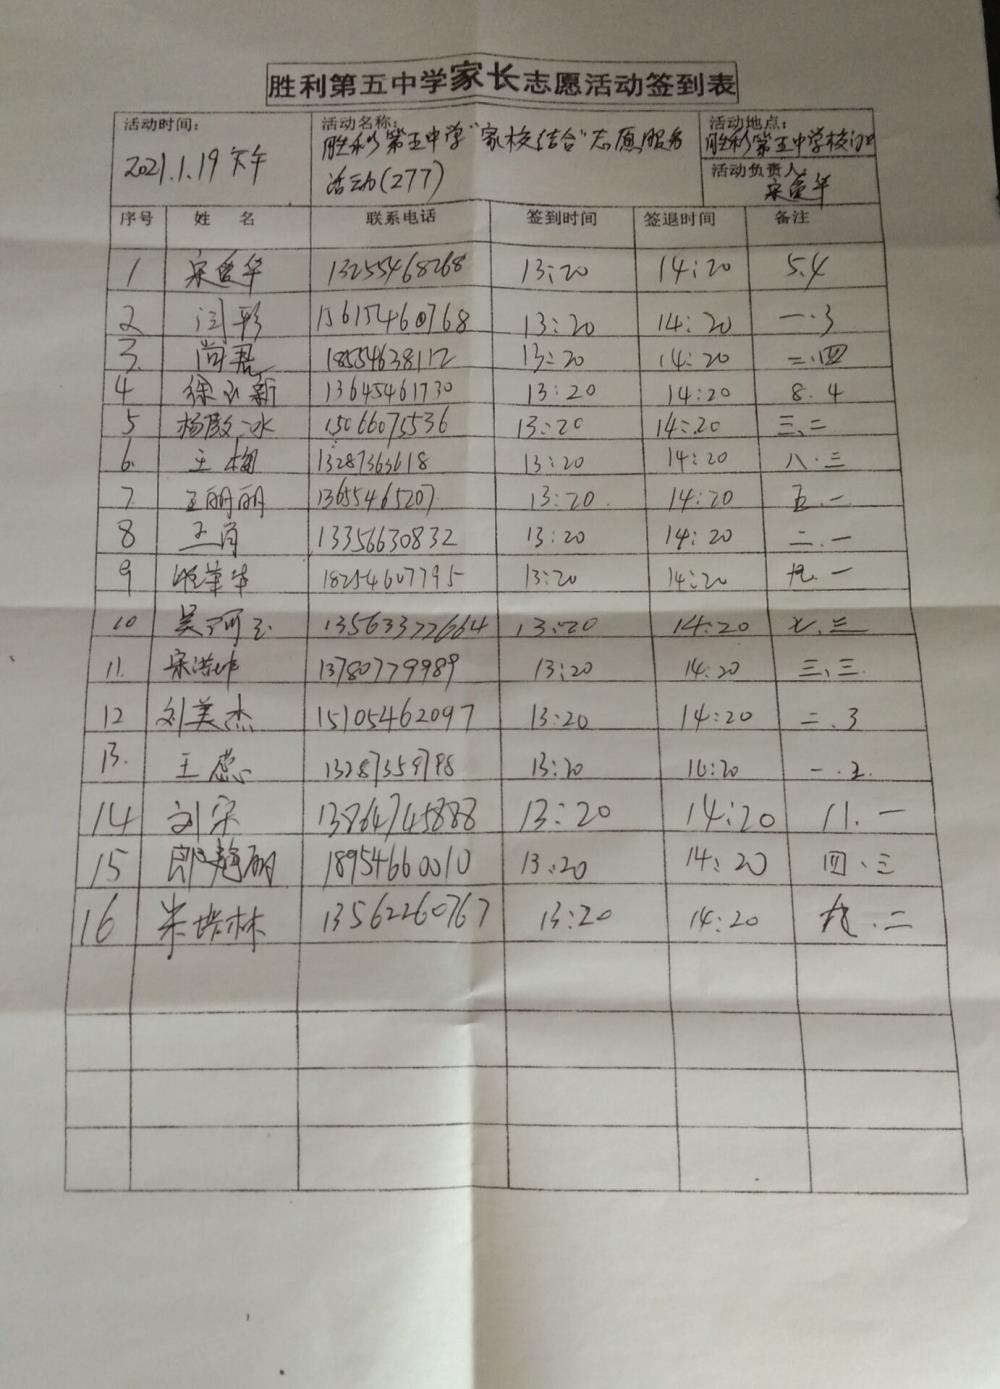 胜利第五中学家长志愿活动签到表
活动时间: 2021.1.19下午
活动名称: 胜利第五中学"家校结合"志愿服务
活动(277)
活动地点: 胜利第五中学校门口
活动负责人: 宋爱华
序号 姓名 联系电话 签到时间 签退时间 备注
1 宋爱华 13255468268 13:20 14:20 5.4
2 闫彩 15615460768 13:20 14:20 一.3
3. 尚君 18554638112 13:20 14:20 二.四
4 徐永新 13645461730 13:20 14:20 8.4
5 杨殿冰 15066075536 13:20 14:20 三、二
6. 王梅 13287363618 13:20 14:20 八.三
7. 王丽丽 13655465207 13:20 14:20 五.一
8 王肖 13356630832 13:20 14:20 二.一
9 18254607795 13:20 14:20 九.一
10 13563372664 13:20 14:20 七.三
11. 宋 13780779989 13:20 14:20 三、三
12 刘美杰 15105462097 13:20 14:20 二.3
13. 王蕊 13287359798 13:20 14:20 一.2.
14 刘宋 13864745888 13:20 14:20 11.一
15 郎静丽 18954660010 13:20 14:20 四.三
16 朱培林 13562260767 13:20 14:20 九.二